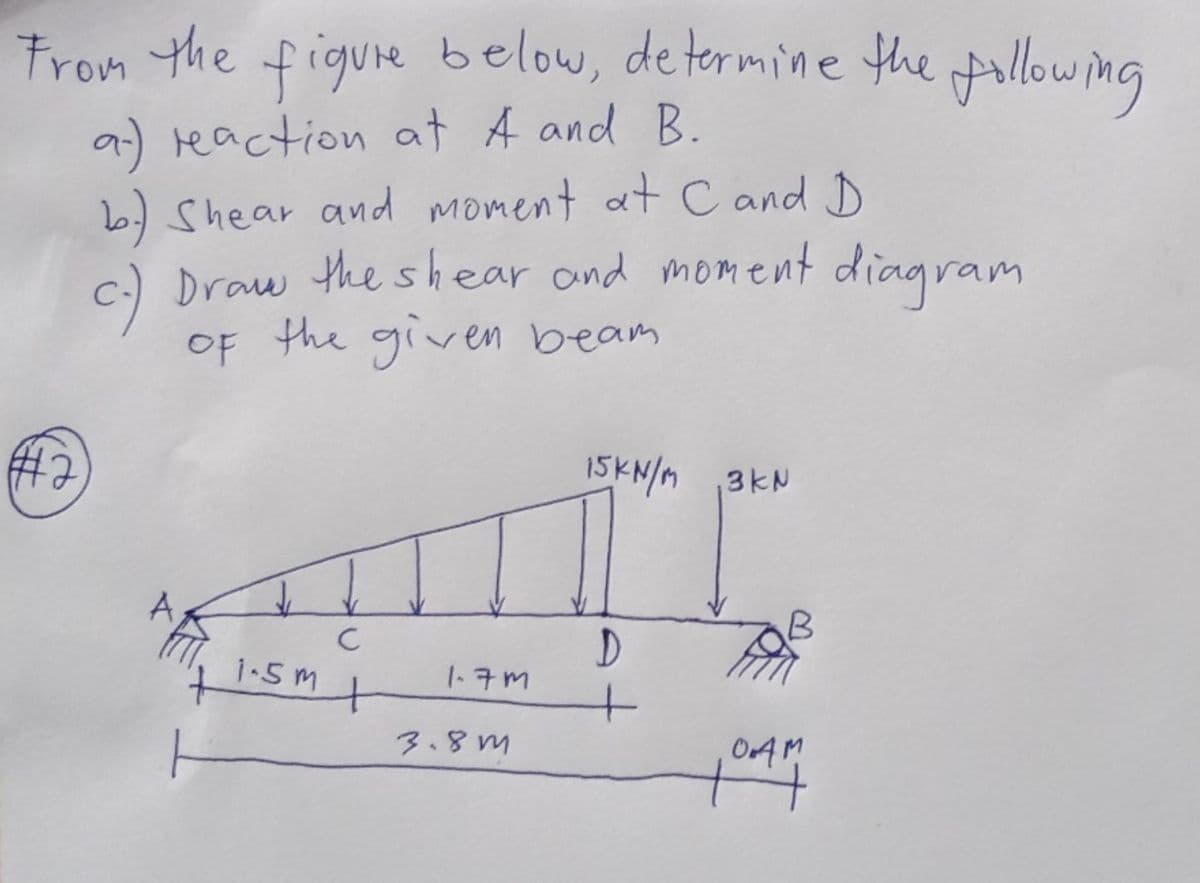 From the figure below, determine the following
a.) reaction at A and B.
b.) Shear and moment at C and D
c.) Draw the shear and moment diagram
OF the given beam
#2
15KN/m 3KN
A
C
D
B
1.5m
1.7m
3.8m
0.4M